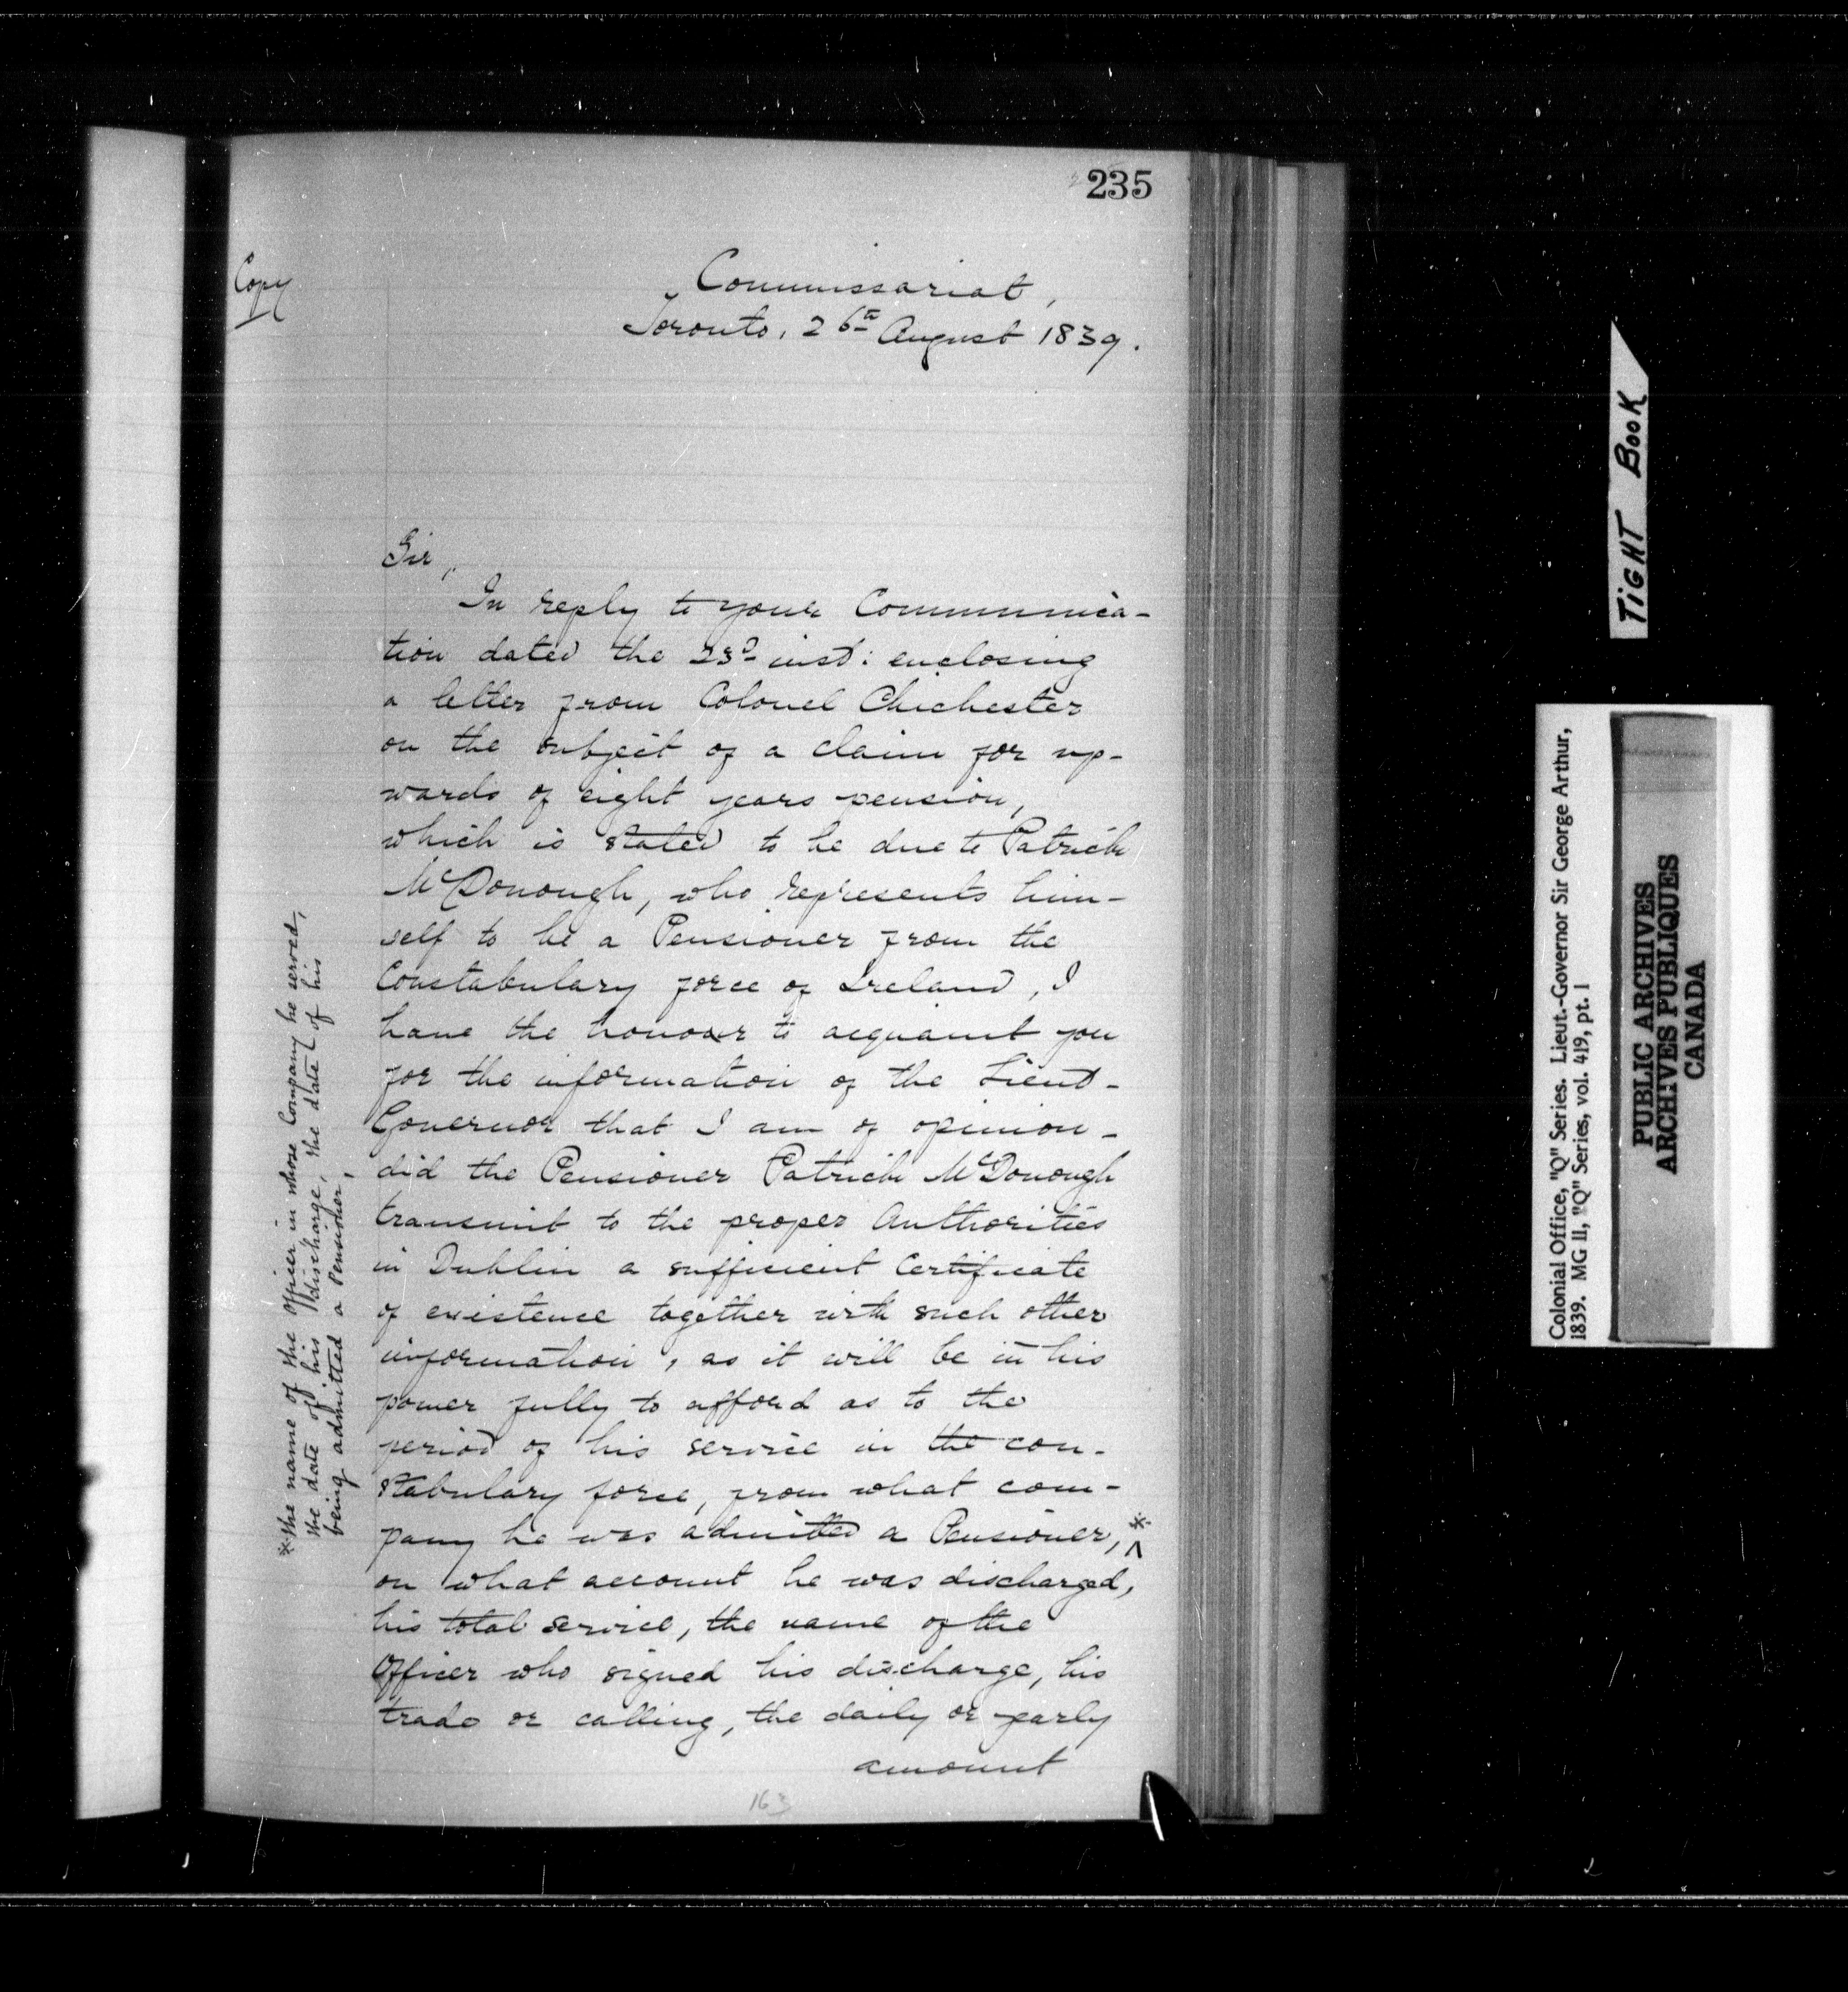 235
Copy
Commissariat,
Toronto, 26th August 1839.
Sir,
In reply to your Communica-
tion dated the 23d inst: enclosing
a letter from Colonel Chichester
on the subject of a claim for up-
wards of eight years pension,
which is stated to be due to Patrick
McDonough, who represents him-
self to be a Pensioner from the
Constabulary force of Ireland, I
have the honour to acquaint you
for the information of the Lieut-
Governor that I am of opinion -
did the Pensioner Patrick McDonough
transmit to the proper Authorities
in Dublin a sufficient Certificate
of existence together with such other
information, as it will be in his
power fully to afford as to the
period of his service in the con-
stabulary force, from what com-
pany he was admitted a Pensioner, *
^
on what account he was discharged,
his total service, the name of the
Officer who signed his discharge, his
trade or calling, the daily or yearly
amount
163
* the name of the Officer in whose Company he served,
the date of his discharge, the date of his
being admitted a Pensioner,
TIGHT BOOK
Colonial Office, "Q" Series. Lieut.-Governor Sir George Arthur,
1839. MG 11, "Q" Series, vol. 419, pt. 1
PUBLIC ARCHIVES
ARCHIVES PUBLIQUES
CANADA